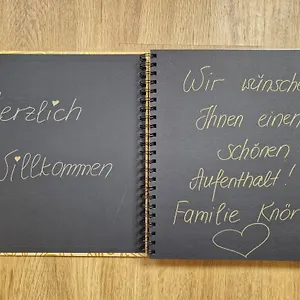 Herzlich
Willkommen
Wir wünschen
Ihnen einen
schönen
Aufenthalt!
Familie Knör